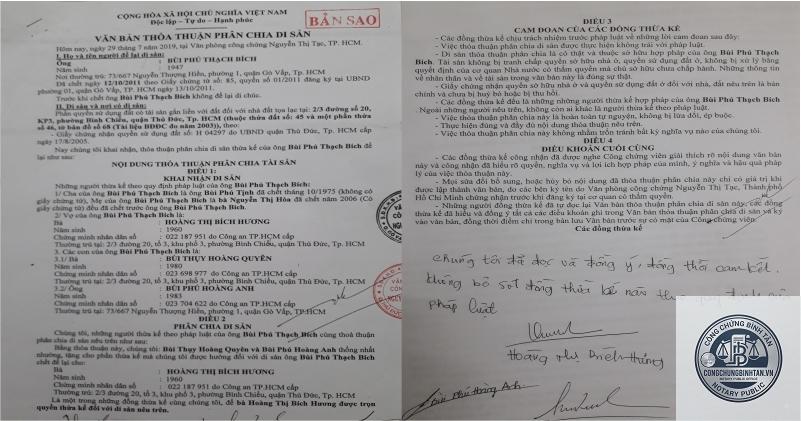 CỘNG HÒA XÃ HỘI CHỦ NGHĨA VIỆT NAM
Độc lập – Tự do – Hạnh phúc
BẢN SAO
VĂN BẢN THỎA THUẬN PHÂN CHIA DI SẢN
Hôm nay, ngày 29 tháng 7 năm 2019, tại Văn phòng công chứng Nguyễn Thị Tạc, TP. HCM.
I. Họ và tên người để lại di sản:
Ông : BÙI PHÚ THẠCH BÍCH
Năm sinh : 1947
Nơi thường trú: 73/667 Nguyễn Thượng Hiền, phường 01, quận Gò Vấp, TP. HCM
Đã chết ngày 12/10/2011 theo Giấy chứng tử số: 85, quyển số 01/2011 đăng ký tại UBND
phường 01, quận Gò Vấp, TP. HCM ngày 13/10/2011.
Trước khi chết ông Bùi Phú Thạch Bích không để lại di chúc.
II. Di sản và nơi có di sản:
Phần quyền sử dụng đất có tài sản gắn liền với đất đối với nhà đất tọa lạc tại: 2/3 đường số 20,
KP3, phường Bình Chiểu, quận Thủ Đức, TP. HCM (thuộc thửa đất số: 45 và một phần thửa
số 46, tờ bản đồ số 68 (Tài liệu BĐĐC đo năm 2003), theo:
- Giấy chứng nhận quyền sử dụng đất số: H 04297 do UBND quận Thủ Đức, TP. HCM cấp
ngày 17/8/2005.
Nay chúng tôi khai nhận, thỏa thuận phân chia di sản thừa kế của ông Bùi Phú Thạch Bích để
lại như sau:
NỘI DUNG THỎA THUẬN PHÂN CHIA TÀI SẢN
ĐIỀU 1:
KHAI NHẬN DI SẢN
Những người thừa kế theo quy định pháp luật của ông Bùi Phú Thạch Bích:
1/ Cha của ông Bùi Phú Thạch Bích là ông Bùi Phú Tịnh đã chết tháng 10/1975 (không có
giấy chứng tử), Mẹ của ông Bùi Phú Thạch Bích là bà Nguyễn Thị Hòa đã chết năm 2006 (Có giấy
chứng tử) đều đã chết trước ông Bùi Phú Thạch Bích.
2/ Vợ của ông Bùi Phú Thạch Bích là:
Bà : HOÀNG THỊ BÍCH HƯƠNG
Năm sinh : 1960
Chứng minh nhân dân số : 022 187 951 do Công an TP.HCM cấp
Thường trú tại: 2/3 đường 20, tổ 3, khu phố 3, phường Bình Chiểu, quận Thủ Đức, TP. HCM
3. Các con của ông Bùi Phú Thạch Bích là:
3.1/ Bà : BÙI THỤY HOÀNG QUYÊN
Năm sinh : 1980
Chứng minh nhân dân số : 023 698 977 do Công an TP.HCM cấp
Thường trú tại: 2/3 đường 20, tổ 3, khu phố 3, phường Bình Chiểu, quận Thủ Đức, TP. HCM
3.2/ Ông : BÙI PHÚ HOÀNG ANH
Năm sinh : 1983
Chứng minh nhân dân số : 023 704 622 do Công an TP.HCM cấp
Thường trú tại: 73/667 Nguyễn Thượng Hiền, phường 01, quận Gò Vấp, TP. HCM
ĐIỀU 2
PHÂN CHIA DI SẢN
Chúng tôi, những người thừa kế theo pháp luật của ông Bùi Phú Thạch Bích cùng thỏa thuận
phân chia di sản nêu trên như sau:
Bằng thỏa thuận này, chúng tôi: Bùi Thụy Hoàng Quyên và Bùi Phú Hoàng Anh thống nhất
nhường, tặng cho phần thừa kế mà chúng tôi được hưởng đối với di sản ông Bùi Phú Thạch Bích
chết để lại cho:
Bà : HOÀNG THỊ BÍCH HƯƠNG
Năm sinh : 1960
Chứng minh nhân dân số : 022 187 951 do Công an TP.HCM cấp
Thường trú: 2/3 đường 20, tổ 3, khu phố 3, phường Bình Chiểu, quận Thủ Đức, TP. HCM
Là một trong những đồng thừa kế cùng chúng tôi, để bà Hoàng Thị Bích Hương được trọn
quyền thừa kế đối với di sản nêu trên.
ĐIỀU 3
CAM ĐOAN CỦA CÁC ĐỒNG THỪA KẾ
- Các đồng thừa kế chịu trách nhiệm trước pháp luật về những lời cam đoan sau đây:
- Việc thỏa thuận phân chia di sản được thực hiện không trái với pháp luật.
- Di sản thỏa thuận phân chia là có thật và thuộc sở hữu hợp pháp của ông Bùi Phú Thạch
Bích. Tài sản không bị tranh chấp quyền sở hữu nhà ở, quyền sử dụng đất ở, không bị xử lý bằng
quyết định của cơ quan Nhà nước có thẩm quyền mà chủ sở hữu chưa chấp hành. Những thông tin
về nhân thân và về tài sản trong văn bản này là đúng sự thật.
- Giấy chứng nhận quyền sở hữu nhà ở và quyền sử dụng đất ở đối với nhà, đất nêu trên là bản
chính và chưa bị huỷ bỏ hoặc bị thu hồi.
- Các đồng thừa kế đều là những người thừa kế hợp pháp của ông Bùi Phú Thạch Bích
. Ngoài những người nêu trên, không còn ai khác là người thừa kế theo pháp luật.
- Việc thỏa thuận phân chia này là hoàn toàn tự nguyện, không bị lừa dối, ép buộc.
- Thực hiện đúng và đầy đủ nội dung thỏa thuận nêu trên.
- Việc thỏa thuận phân chia này không nhằm trốn tránh bất kỳ nghĩa vụ nào của chúng tôi.
ĐIỀU 4
ĐIỀU KHOẢN CUỐI CÙNG
- Các đồng thừa kế công nhận đã được nghe Công chứng viên giải thích rõ nội dung văn bản
này và công nhận đã hiểu rõ quyền, nghĩa vụ và lợi ích hợp pháp của mình, ý nghĩa và hậu quả pháp
lý của việc thỏa thuận này.
- Mọi sửa đổi bổ sung, hoặc hủy bỏ nội dung đã thỏa thuận phân chia này chỉ có giá trị khi
được lập thành văn bản, do các bên ký tên do Văn phòng công chứng Nguyễn Thị Tạc, Thành phố
Hồ Chí Minh chứng nhận trước khi đăng ký tại cơ quan có thẩm quyền.
- Những người đồng thừa kế đã tự đọc lại Văn bản thỏa thuận phân chia di sản này, các đồng
thừa kế đã hiểu và đồng ý tất cả các điều khoản ghi trong Văn bản thỏa thuận phân chia di sản và ký
vào văn bản, đồng thời điểm chỉ trong bản lưu Văn bản trước sự có mặt của Công chứng viên.
Các đồng thừa kế
Chúng tôi đã đọc và đồng ý, đồng thời cam kết.
không bỏ sót đồng thừa kế nào
pháp luật
Hoàng Thị Bích Hương
Bùi Phú Hoàng Anh
CÔNG CHỨNG BÌNH TÂN
CONGCHUNGBINHTAN.VN
NOTARY PUBLIC OFFICE
NOTARY PUBLIC